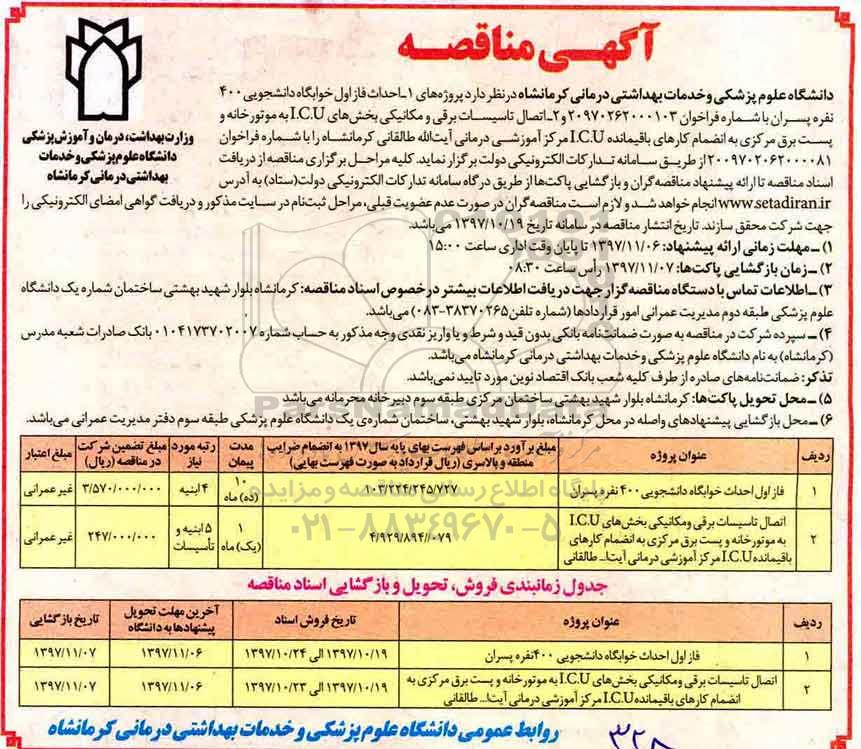 آگهی مناقصه
وزارت بهداشت، درمان و آموزش پزشکی
دانشگاه علوم پزشکی و خدمات
بهداشتی درمانی کرمانشاه
دانشگاه علوم پزشکی و خدمات بهداشتی درمانی کرمانشاه در نظر دارد پروژه‌های ۱ـ احداث فاز اول خوابگاه دانشجویی ۴۰۰
نفره پسران با شماره فراخوان ۲۰۹۷۰۲۶۲۰۰۰۱۰۳ و ۲ـ اتصال تاسیسات برقی و مکانیکی بخش‌های I.C.U به موتورخانه و
پست برق مرکزی به انضمام کارهای باقیمانده I.C.U مرکز آموزشی درمانی آیت‌الله طالقانی کرمانشاه را با شماره فراخوان
۲۰۰۹۷۰۲۰۶۲۰۰۰۰۸۱ از طریق سامانه تدارکات الکترونیکی دولت برگزار نماید. کلیه مراحل برگزاری مناقصه از دریافت
اسناد مناقصه تا ارائه پیشنهاد مناقصه‌گران و بازگشایی پاکت‌ها از طریق درگاه سامانه تدارکات الکترونیکی دولت (ستاد) به آدرس
www.setadiran.ir انجام خواهد شد و لازم است مناقصه‌گران در صورت عدم عضویت قبلی، مراحل ثبت‌نام در سایت مذکور و دریافت گواهی امضای الکترونیکی را
جهت شرکت محقق سازند. تاریخ انتشار مناقصه در سامانه تاریخ ۱۳۹۷/۱۰/۱۹ می‌باشد.
۱) ـ مهلت زمانی ارائه پیشنهاد: ۱۳۹۷/۱۱/۰۶ تا پایان وقت اداری ساعت ۱۵:۰۰
۲) ـ زمان بازگشایی پاکت‌ها: ۱۳۹۷/۱۱/۰۷ رأس ساعت ۰۸:۳۰
۳) ـ اطلاعات تماس با دستگاه مناقصه‌گزار جهت دریافت اطلاعات بیشتر در خصوص اسناد مناقصه: کرمانشاه بلوار شهید بهشتی ساختمان شماره یک دانشگاه
علوم پزشکی طبقه دوم مدیریت عمرانی امور قراردادها (شماره تلفن ۳۸۳۷۰۲۶۵-۰۸۳) می‌باشد.
۴) ـ سپرده شرکت در مناقصه به صورت ضمانتنامه بانکی بدون قید و شرط و یا واریز نقدی وجه مذکور به حساب شماره ۰۱۰۴۱۷۳۷۰۲۰۰۷ بانک صادرات شعبه مدرس
(کرمانشاه) به نام دانشگاه علوم پزشکی و خدمات بهداشتی درمانی کرمانشاه می‌باشد.
تذکر: ضمانت‌نامه‌های صادره از طرف کلیه شعب بانک اقتصاد نوین مورد تایید نمی‌باشد.
۵) ـ محل تحویل پاکت‌ها: کرمانشاه بلوار شهید بهشتی ساختمان مرکزی طبقه سوم دبیرخانه محرمانه می‌باشد
۶) ـ محل بازگشایی پیشنهادهای واصله در محل کرمانشاه، بلوار شهید بهشتی، ساختمان شماره‌ی یک دانشگاه علوم پزشکی طبقه سوم دفتر مدیریت عمرانی می‌باشد.
ردیف عنوان پروژه مبلغ برآورد براساس فهرست بهای پایه سال ۱۳۹۷ به انضمام ضرایب منطقه و بالاسری (ریال قرارداد به صورت فهرست بهایی) مدت پیمان رتبه مورد نیاز مبلغ تضمین شرکت در مناقصه (ریال) مبلغ اعتبار
۱ فاز اول احداث خوابگاه دانشجویی ۴۰۰ نفره پسران ۱۰۳/۲۲۴/۲۴۵/۷۲۷ ۱۰ (ده) ماه ۴ ابنیه ۳/۵۷۰/۰۰۰/۰۰۰ غیر عمرانی
۲ اتصال تاسیسات برقی ومکانیکی بخش‌های I.C.U به موتورخانه و پست برق مرکزی به انضمام کارهای باقیمانده I.C.U مرکز آموزشی درمانی آیت‌ا... طالقانی ۴/۹۲۹/۸۹۴/۰۷۹ ۱ (یک) ماه ۵ ابنیه و تأسیسات ۲۴۷/۰۰۰/۰۰۰ غیر عمرانی
جدول زمانبندی فروش، تحویل و بازگشایی اسناد مناقصه
ردیف عنوان پروژه تاریخ فروش اسناد آخرین مهلت تحویل پیشنهادها به دانشگاه تاریخ بازگشایی
۱ فاز اول احداث خوابگاه دانشجویی ۴۰۰نفره پسران ۱۳۹۷/۱۰/۱۹ الی ۱۳۹۷/۱۰/۲۴ ۱۳۹۷/۱۱/۰۶ ۱۳۹۷/۱۱/۰۷
۲ اتصال تاسیسات برقی ومکانیکی بخش‌های I.C.U به موتورخانه و پست برق مرکزی به انضمام کارهای باقیمانده I.C.U مرکز آموزشی درمانی آیت‌ا... طالقانی ۱۳۹۷/۱۰/۱۹ الی ۱۳۹۷/۱۰/۲۳ ۱۳۹۷/۱۱/۰۶ ۱۳۹۷/۱۱/۰۷
روابط عمومی دانشگاه علوم پزشکی و خدمات بهداشتی درمانی کرمانشاه
ParsNamadData
پایگاه اطلاع رسانی مناقصه و مزایده
۰۲۱-۸۸۳۴۹۶۷۰-۵